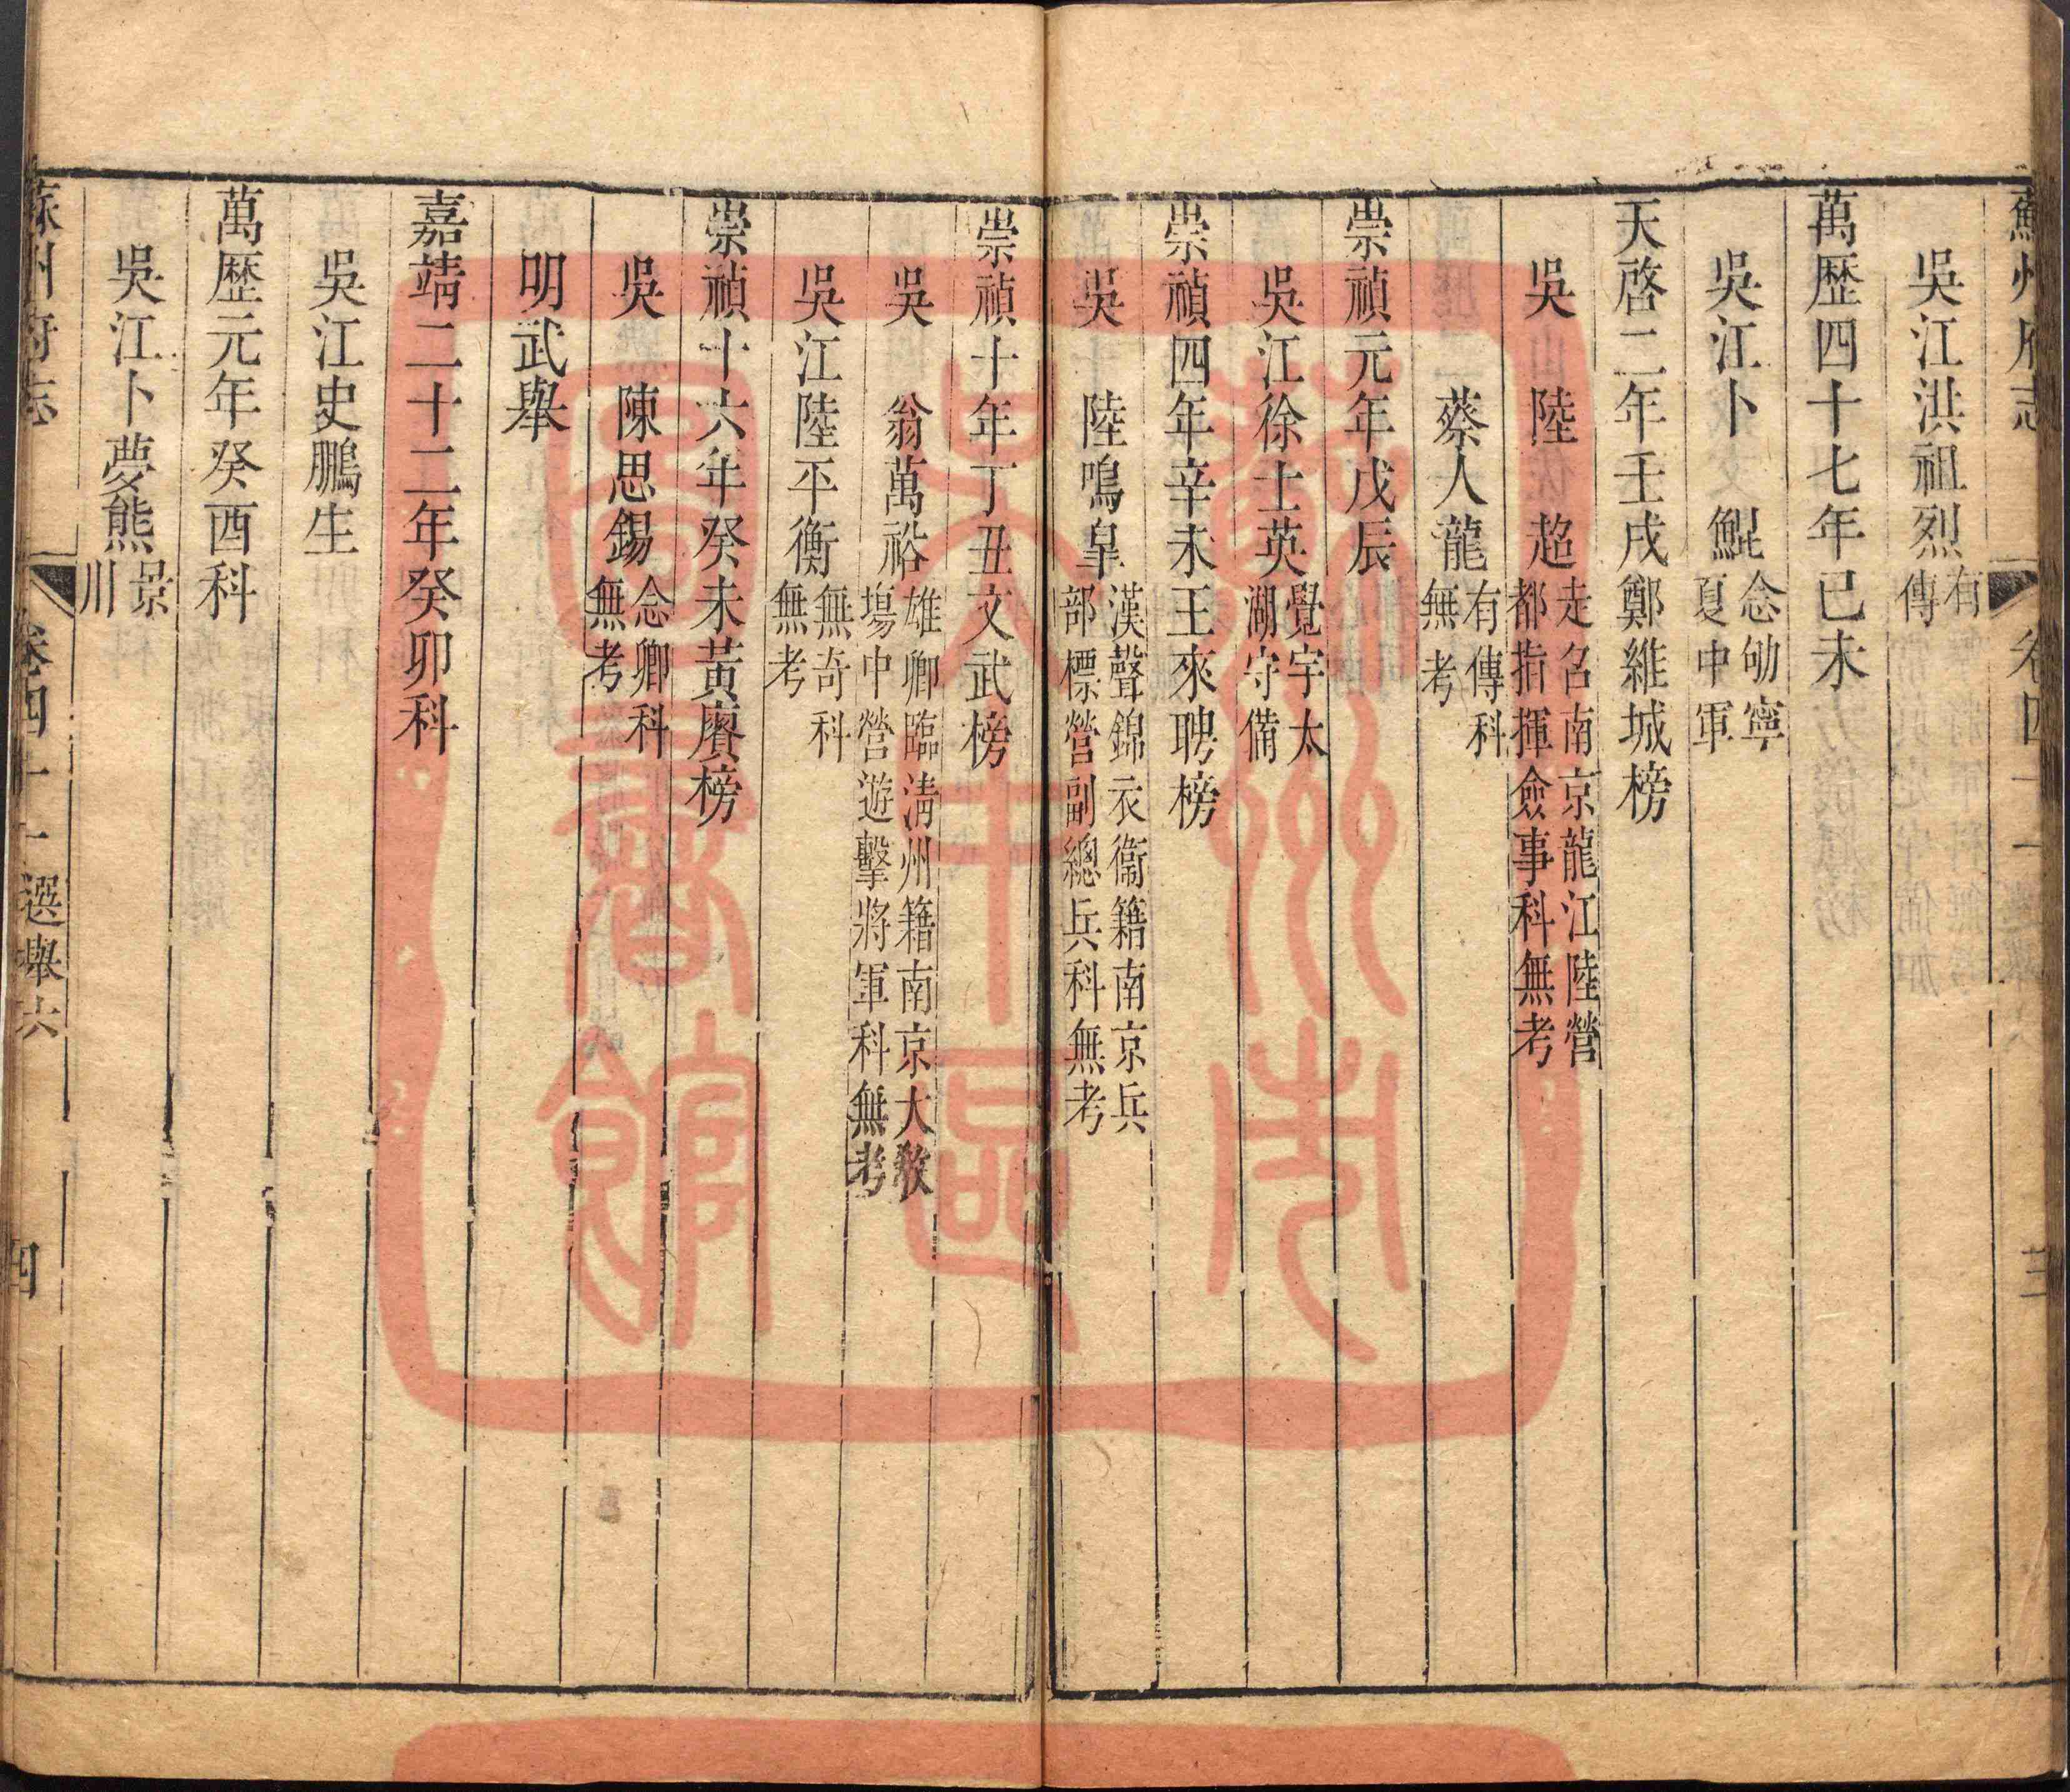 蘇州府志 卷四十一 三
吳江洪祖烈 有傳
萬歷四十七年己未
吳江卜 鯤 念劬寧夏中軍
天啓二年壬戌鄭維城榜
吳 陸 超 走名南京龍江陸營都指揮僉事科無考
蔡人龍 有傳科無考
崇禎元年戊辰
吳江徐士英 覺宇太湖守備
崇禎四年辛未王來聘榜
吳 陸鳴皐 漢聲錦衣衞籍南京兵部標營副總兵科無考
崇禎十年丁丑文武榜
吳 翁萬裕 雄卿臨淸州籍南京大敎塲中營遊擊將軍科無考
吳江陸平衡 無奇科無考
崇禎十六年癸未黃賡榜
吳 陳思錫 念卿科無考
明武舉
嘉靖二十二年癸卯科
吳江史鵬生
萬歷元年癸酉科
吳江卜夢熊 景川
蘇州府志 卷四十一 選舉六 四
蘇州市
圖書館